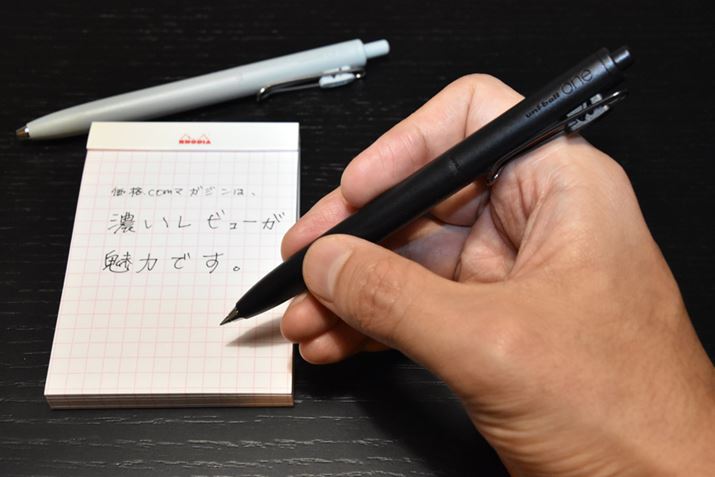 RHODIA
価格.comマガジンは、
濃いレビューが
魅力です。
uni-ball one